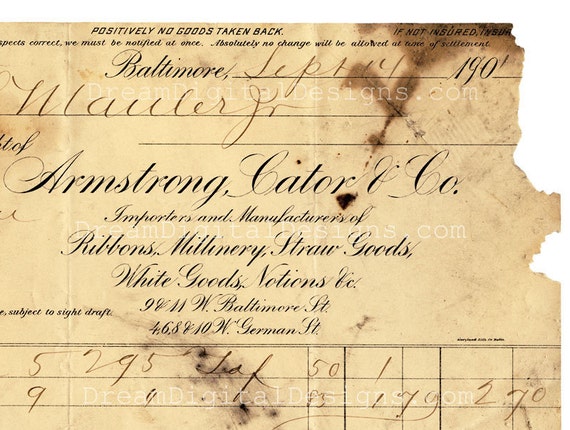 POSITIVELY NO GOODS TAKEN BACK. IF NOT INSURED, INSUR
spects correct, we must be notified at once. Absolutely no change will be allowed at time of settlement.
Baltimore, Sept 14 190
Mauler Jr
DreamDigitalDesigns.com
ht of
Armstrong, Cator & Co.
Importers and Manufacturers of
DreamDigitalDesigns.com
Ribbons, Millinery, Straw Goods,
White Goods, Notions &c.
9 & 11 W. Baltimore St.
e, subject to sight draft.
4,6,8 & 10 W. German St.
5 295 Taf 50 1
9 9 85 1 79 2 70
DreamDigitalDesigns.com